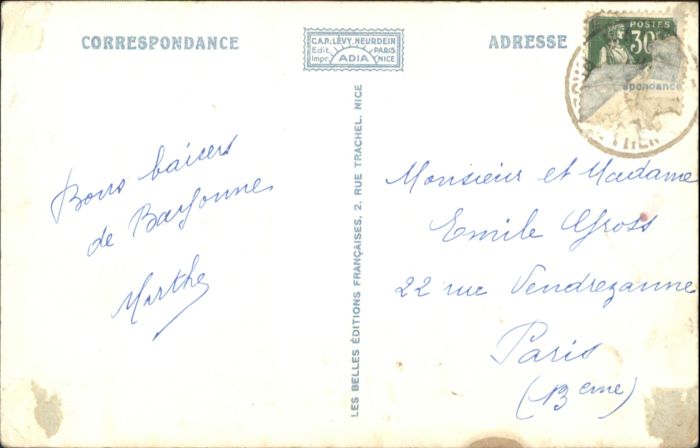 CORRESPONDANCE
C.A.P. LÉVY. NEURDEIN
Edit. PARIS
Impr. ADIA NICE
ADRESSE
POSTES
30
spondance
Bons baisers
de Bayonne
Marthe
LES BELLES ÉDITIONS FRANÇAISES, 2, RUE TRACHEL, NICE
Monsieur et Madame
Emile Gross
22 rue Vendrezanne
Paris
(13 eme)